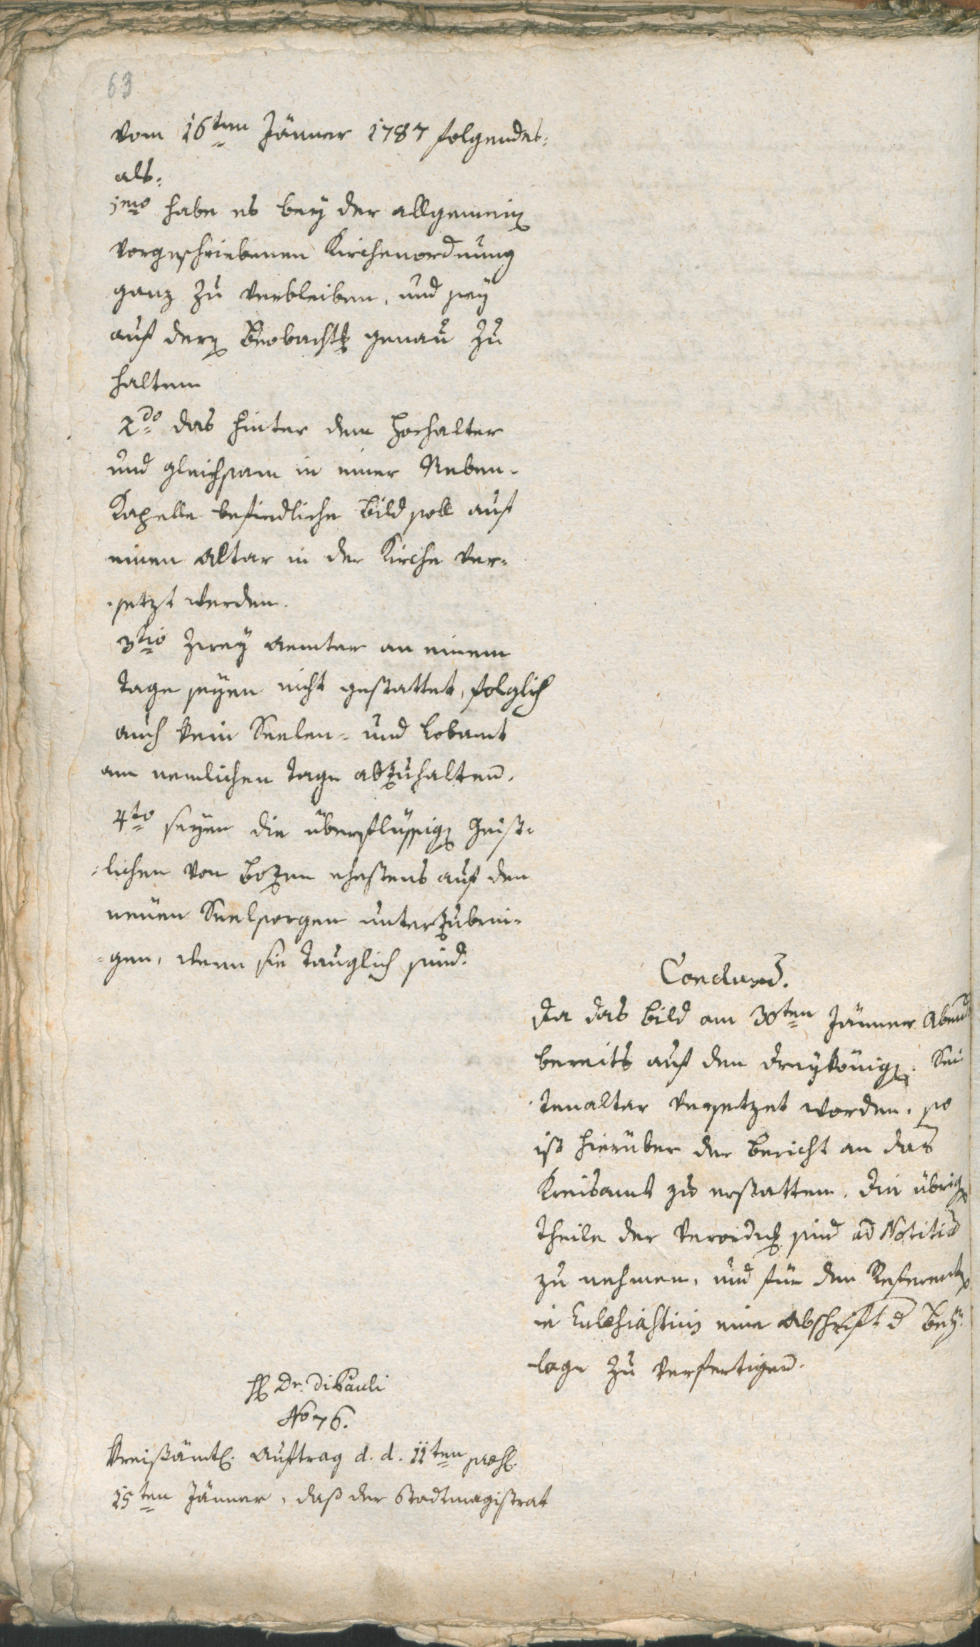 63
vom 16ten Jänner 1787 folgendes:
als:
1mo habe es bey der allgemein
vorgeschriebenen Kirchenordnung
ganz zu verbleiben, und sey
auf der Beobacht genau zu
halten
2do das hinter dem Hochalter
und gleichsam in einer Neben-
Kapelle befindliche Bild soll auf
einen Altar in der Kirche ver-
-setzt werden.
3tio Zwey Aemter an einem
Tage seyen nicht gestattet, folglich
auch kein Seelen- und Lobamt
am nemlichen Tage abzuhalten.
4to seyen die überflüssig Geist-
-lichen von Bozen ehestens auf den
neuen Seelsorgen unterzubrin-
-gen, wenn sie tauglich sind.
Conclus.
Da das Bild am 30ten Jänner Abends
bereits auf den Dreykönig: Sei
-tenaltar versetzet worden, so
ist hierüber der Bericht an das
Kreisamt zu erstatten. Die übrig
Theile der Verordn sind ad Notitia
zu nehmen, und für den Referent
in Eclesiasticis eine Abschrift d Bey-
-lage zu verfertigen.
H Dr. Di Pauli
No 76.
Kreisämtl. Auftrag d. d. 11ten praes.
15ten Jänner, daß der Stadtmagistrat